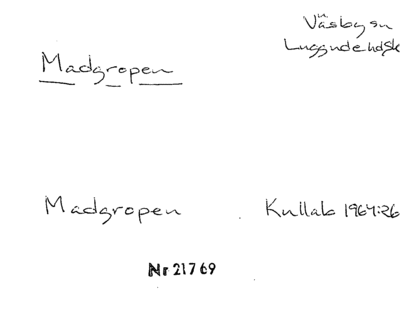 Väsby sn
Luggude hdsk
Madgropen
Madgropen Kullab 1964:26
Nr 21769